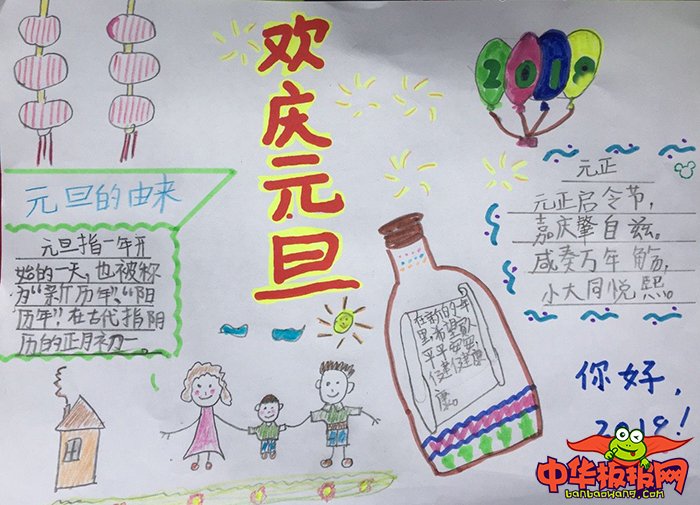 欢庆元旦
2019
元旦的由来
元旦指一年开
始的一天,也被称
为“新历年”“阳
历年”。在古代指阴
历的正月初一。
元正
元正启令节,
嘉庆肇自兹。
咸奏万年觞,
小大同悦熙。
在新的一年
里,希望
平平安安,
健健康
康。
你好,
2019!
中华板报网
banbaowang.com